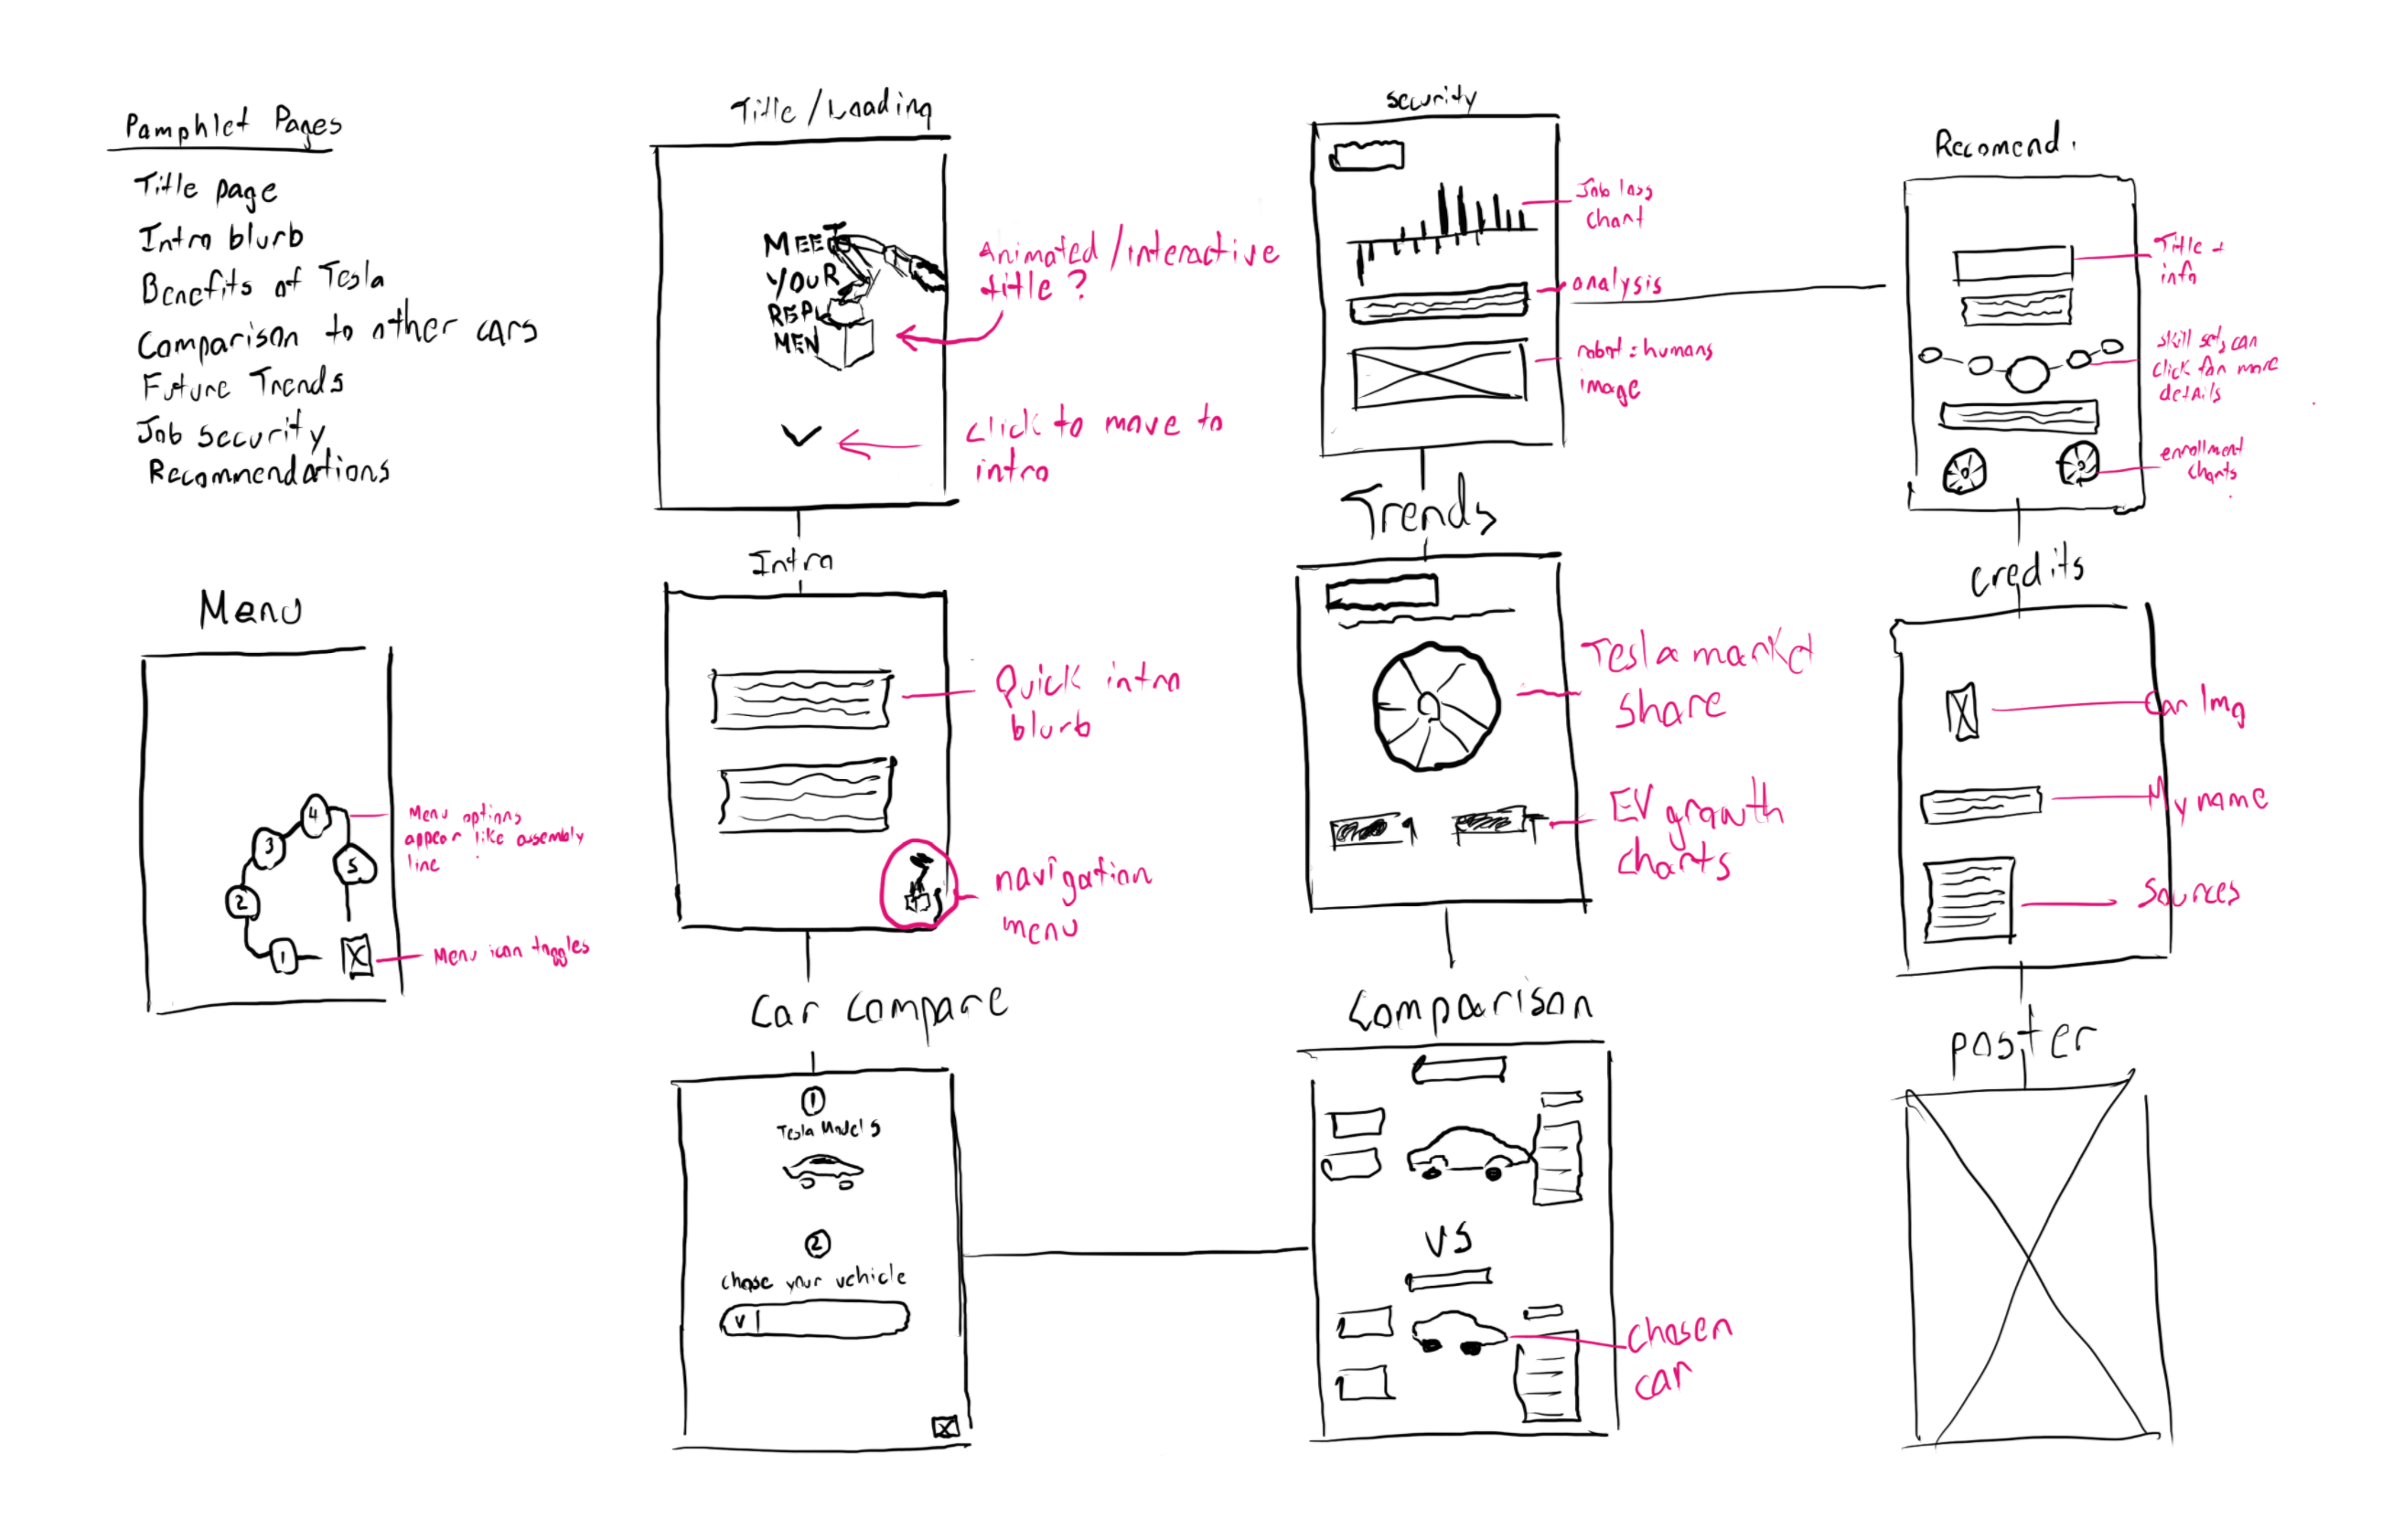 Pamphlet Pages
Title page
Intro blurb
Benefits of Tesla
Comparison to other cars
Future Trends
Job security
Recommendations
Menu
4
3
5
2
1
X
Menu options
appear like assembly
line
Menu icon toggles
Title / Loading
MEET
YOUR
REPL
MEN
Animated / interactive
title ?
Click to move to
intro
Intro
Quick intro
blurb
navigation
menu
Car Compare
1
Tesla Model S
2
Chose your vehicle
V
Security
Job loss
chart
analysis
robot : humans
image
Trends
Tesla market
share
EV growth
charts
Comparison
VS
Chosen
car
Recomend.
Title +
info
skill sets, can
click for more
details
enrollment
charts
Credits
Car Img
My name
Sources
poster